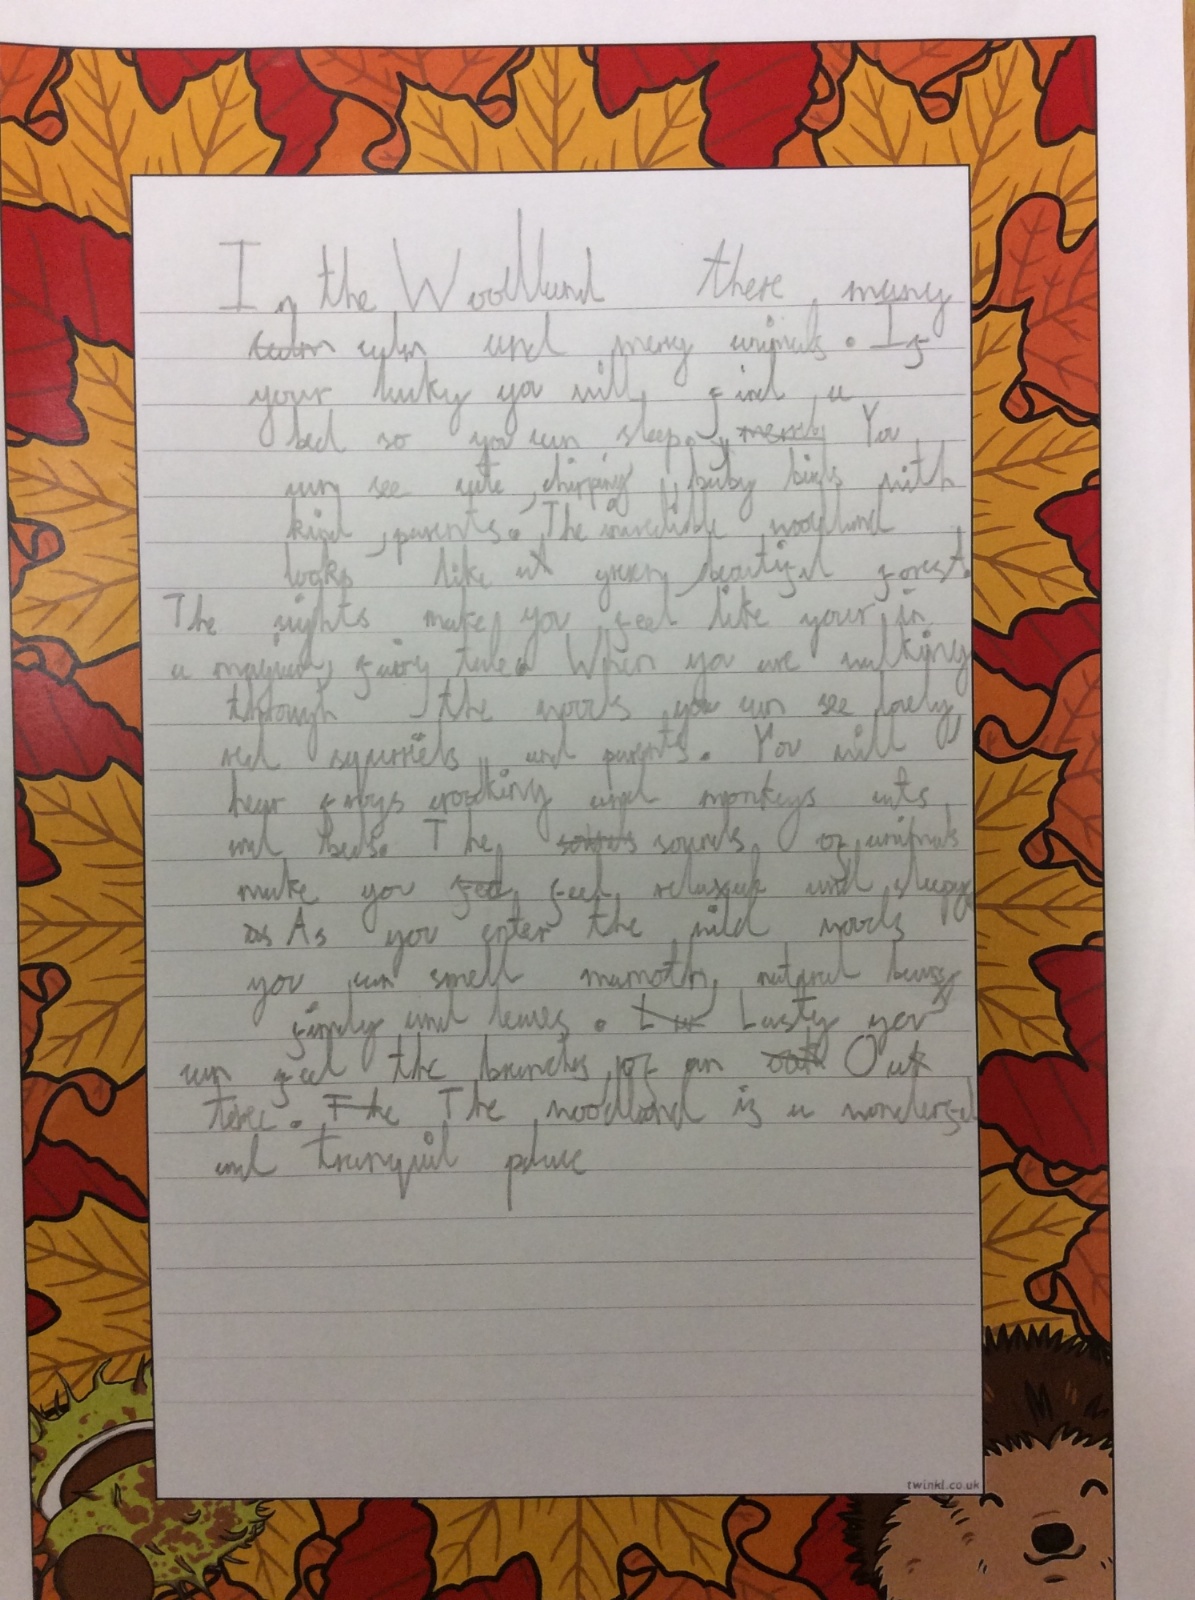 In the Woodland there many
calm calm and merry animals. If
your lucky you will find a
bed so you can sleep. merely You
can see cute, chirping, baby birds with
kind parents. The incredible woodland
looks like a green, beautiful forest.
The nights make you feel like your in
a magical, fairy tale. When you are walking
through the woods you can see lovely
red squirriels and parents. You will
hear frogs croaking and monkeys ants
and beds. The sounds of animals
make you feel feel relaxed and sleepy.
as As you enter the wild woods
you can smell mamoth, natural
and leaves. Lasty you
can feel the branches of an Oak
tree. The The woodland is a wonderful
and tranquil place
twinkl.co.uk